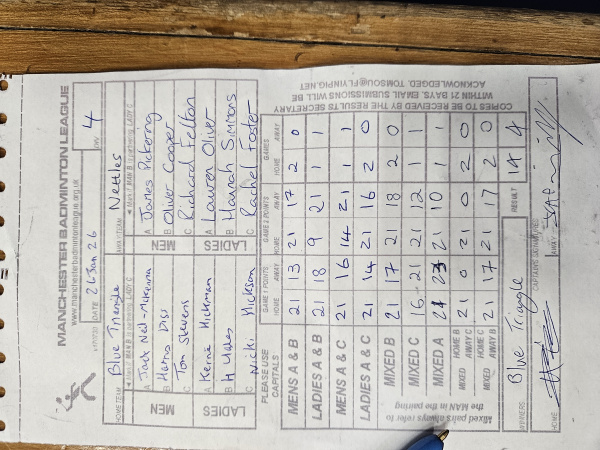 MANCHESTER BADMINTON LEAGUE
www.manchesterbadmintonleague.org.uk
DATE 26 Jan 26 DIV 4
HOME TEAM Blue Triangle AWAY TEAM Nettles
◄ Mark if MAN B is partnering LADY C ◄ Mark if MAN B is partnering LADY C
MEN A Jack Neil-McKenna MEN A James Pickering
B Harris Diss B Oliver Cooper
C Tom Stevens C Richard Felton
LADIES A Kerrie Hickman LADIES A Lauren Oliver
B H Oakes B Hannah Simmons
C Nicki Hickson C Rachel Foster
PLEASE USE CAPITALS GAME 1 POINTS GAME 2 POINTS GAMES
HOME AWAY HOME AWAY HOME AWAY
MENS A & B 21 13 21 17 2 0
LADIES A & B 21 18 9 21 1 1
MENS A & C 21 16 14 21 1 1
LADIES A & C 21 14 21 16 2 0
MIXED B 21 17 21 18 2 0
MIXED C 16 21 21 12 1 1
MIXED A 21 23 21 10 1 1
MIXED HOME B AWAY C 21 0 21 0 2 0
MIXED HOME C AWAY B 21 17 21 17 2 0
WINNERS Blue Triangle RESULT 14 4
CAPTAINS SIGNATURES
HOME AWAY
Mixed pairs always refer to
the MAN in the pairing
COPIES TO BE RECEIVED BY THE RESULTS SECRETARY
WITHIN 21 DAYS. EMAIL SUBMISSIONS WILL BE
ACKNOWLEDGED. TOMSOU@FLYINPIG.NET